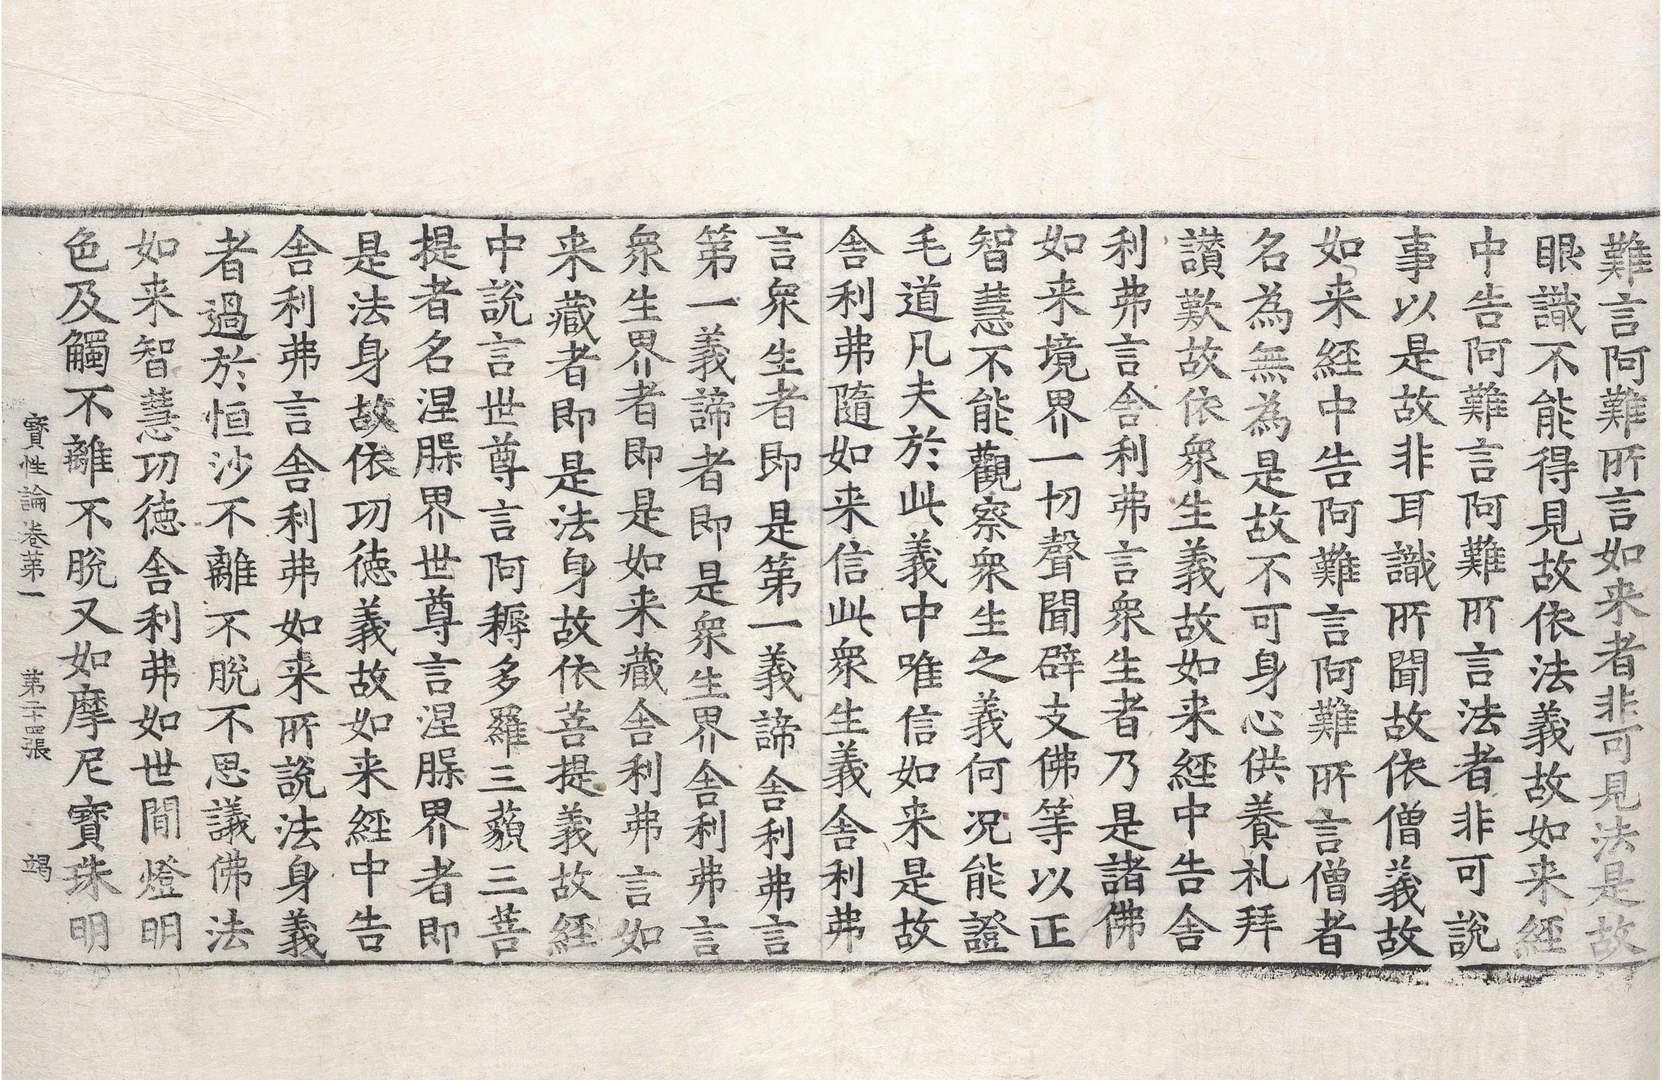 難言阿難所言如来者非可見法是故
眼識不能得見故依法義故如来經
中告阿難言阿難所言法者非可說
事以是故非耳識所聞故依僧義故
如来經中告阿難言阿難所言僧者
名為無為是故不可身心供養礼拜
讃歎故依衆生義故如来經中告舍
利弗言舍利弗言衆生者乃是諸佛
如来境界一切聲聞辟支佛等以正
智慧不能觀察衆生之義何况能證
毛道凡夫於此義中唯信如来是故
舍利弗隨如来信此衆生義舍利弗
言衆生者即是第一義諦舍利弗言
第一義諦者即是衆生界舍利弗言
衆生界者即是如来藏舍利弗言如
来藏者即是法身故依菩提義故經
中說言世尊言阿耨多羅三藐三菩
提者名涅槃界世尊言涅槃界者即
是法身故依功徳義故如来經中告
舍利弗言舍利弗如来所說法身義
者過於恒沙不離不脫不思議佛法
如来智慧功徳舍利弗如世間燈明
色及觸不離不脫又如摩尼寶珠明
寶性論卷第一 第二十四張 竭